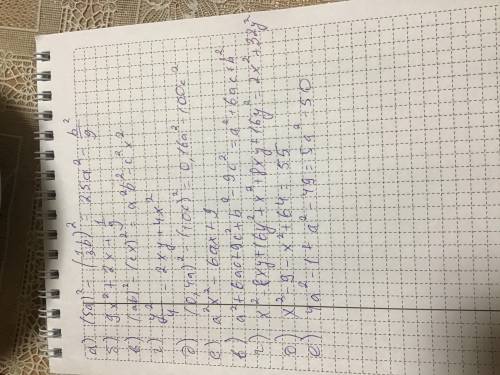 а) (5a)² = (1/3 b)² = 25a² - b²/9
б) 9x² + 2x + 1/9
в) (ab)² - (cx)² = a²b² - c²x²
г) y²/4 = 2xy + 4x²
д) (0,4a)² - (10c)² = 0,16a² - 100c²
е) a²x² - 6ax + 9
в) a² + 6ac + 9c² + b² - 9c² = a² + 6ac + b²
г) x² - 8xy + 16y² + x² + 8xy + 16y² = 2x² + 32y²
д) x² - 9 - x² + 64 = 55
е) 4a² - 1 + a² - 49 = 5a² - 50